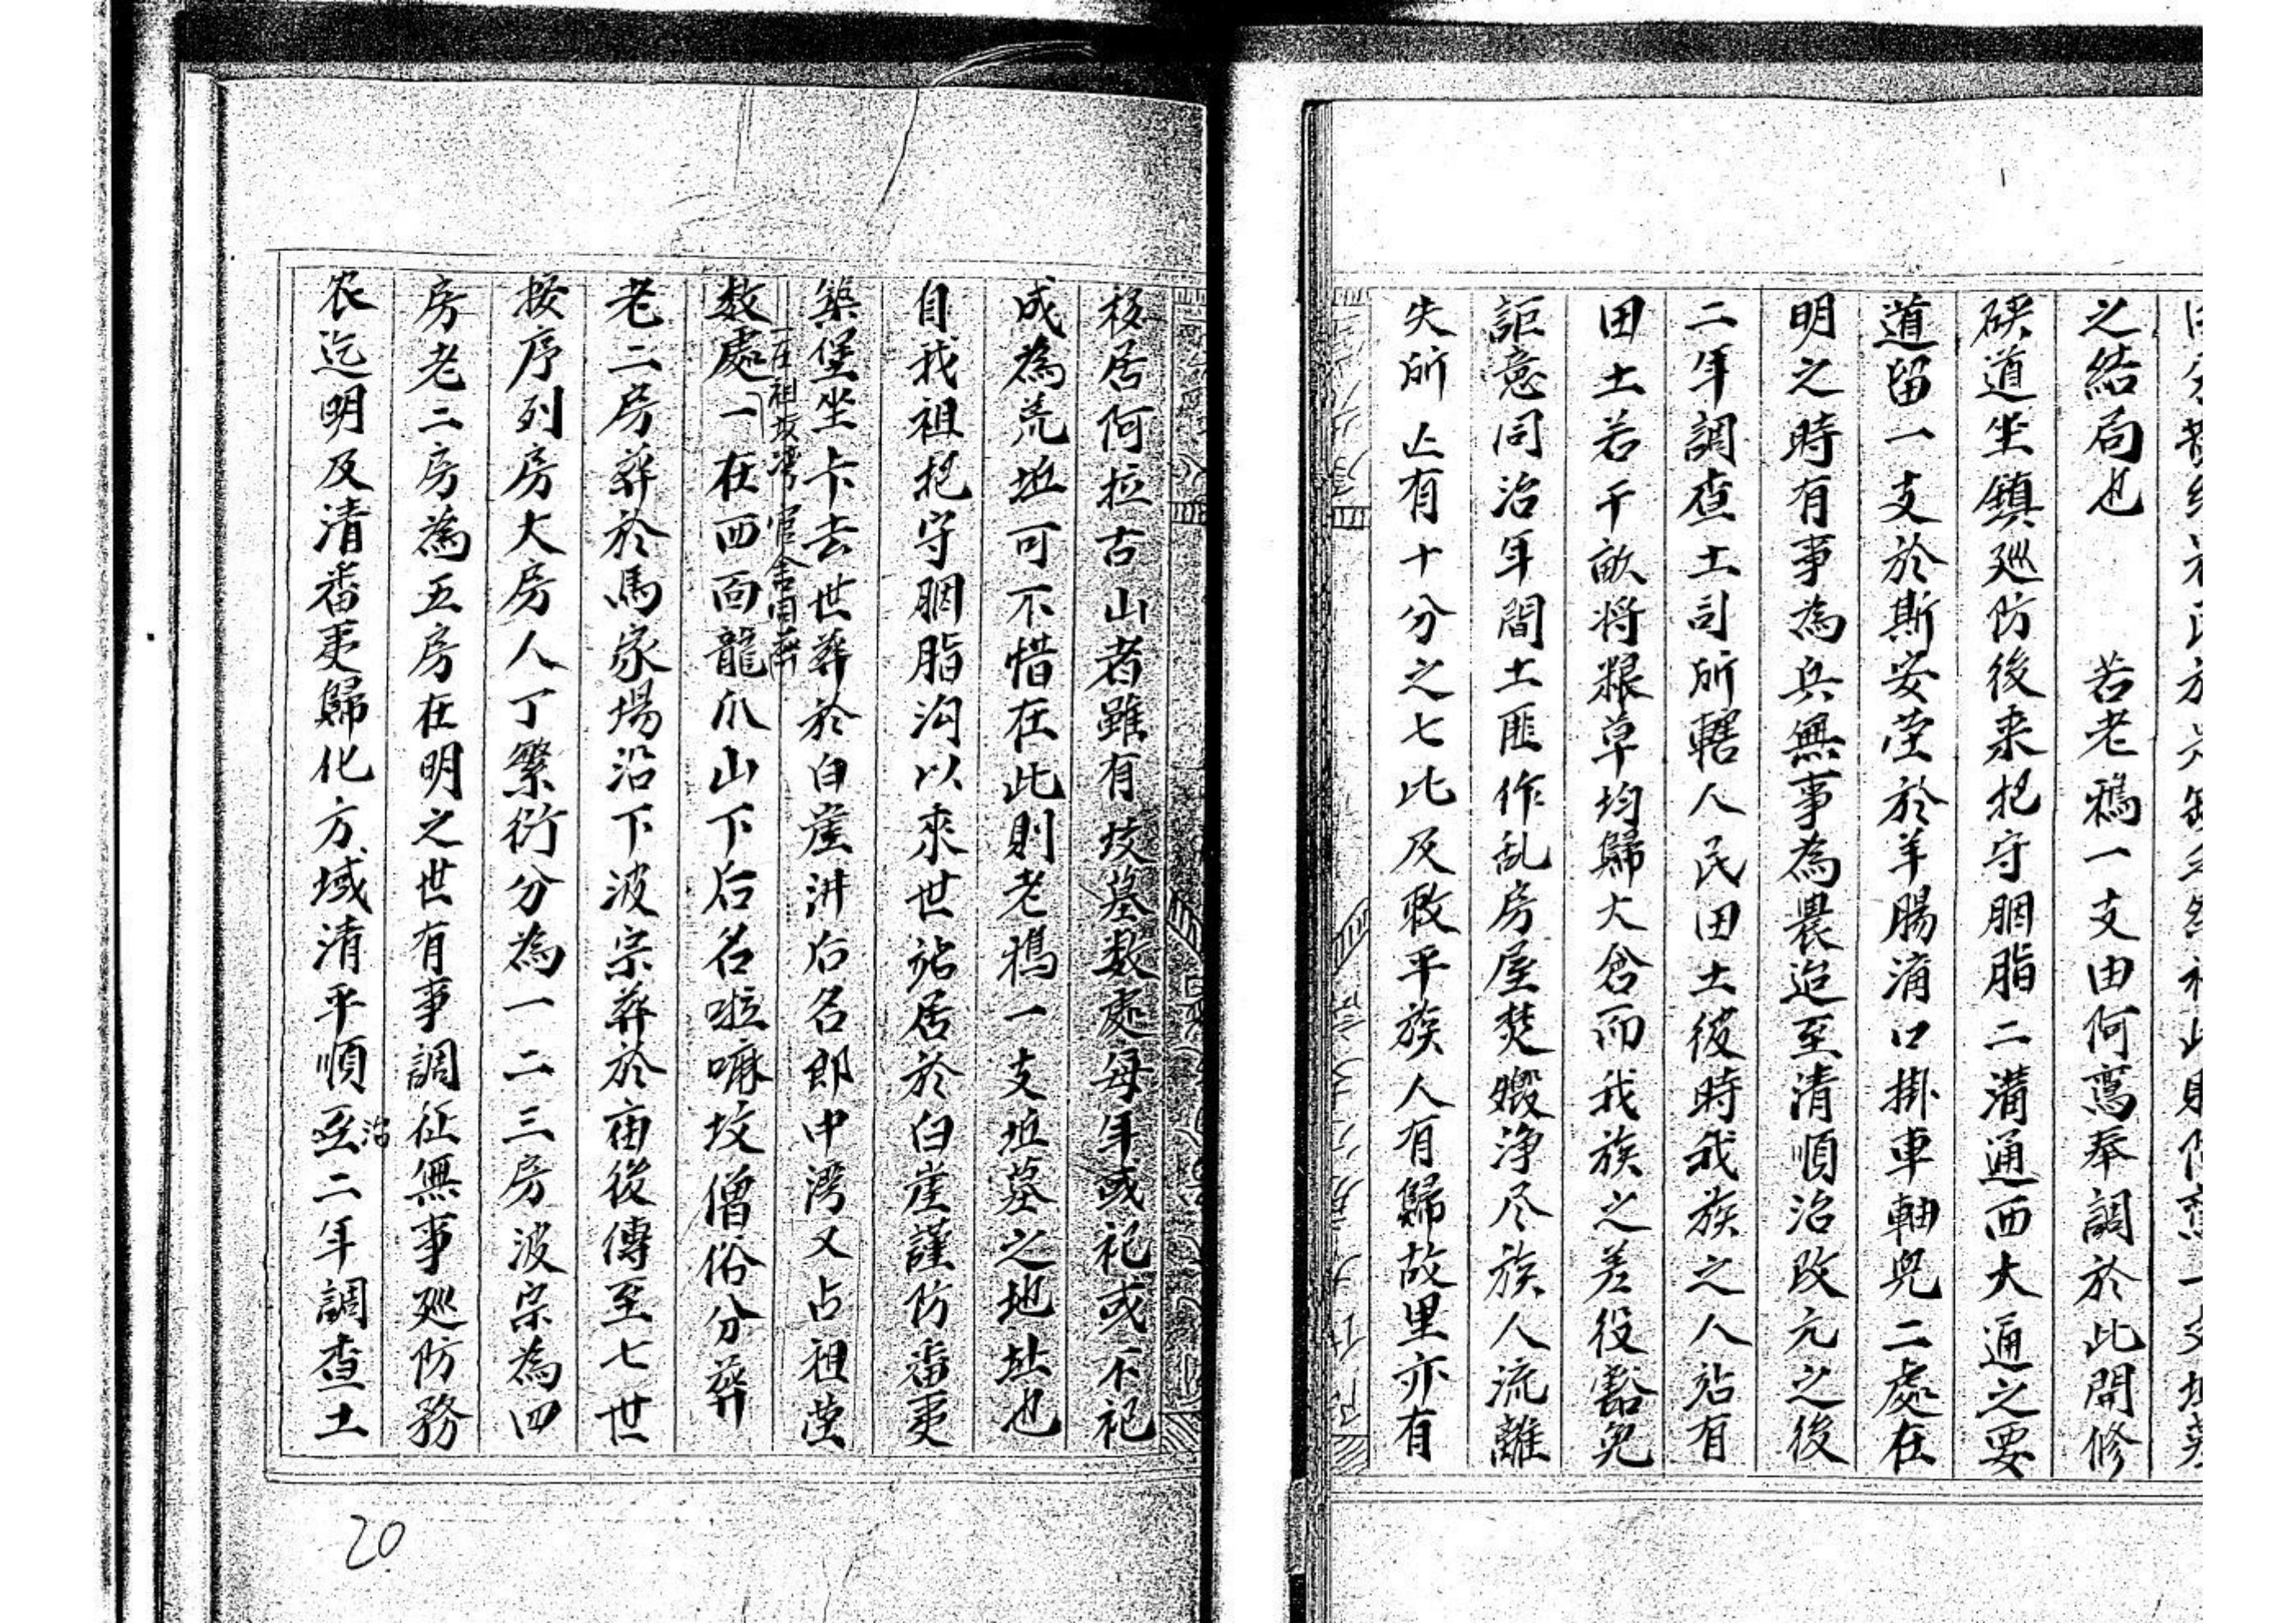 之結局也　　若老鴉一支由何鸞奉調於此開修
硤道坐鎮廵防後来把守胭脂二溝通西大通之要
道留一支於斯安塋於羊腸溝口掛車軸兕二處在
明之時有事為兵無事為農迨至清順治改元之後
二年調查土司所轄人民田土彼時我族之人站有
田土若干畝将粮草均歸大倉而我族之差役豁免
詎意同治年間土匪作乱房屋焚燬净尽族人流離
失所亾有十分之七比及敉平族人有歸故里亦有
移居何拉古山者雖有坟墓数處每年或祀或不祀
成為荒坵可不惜在此則老鴉一支坵墓之地址也
自我祖把守胭脂沟以來世站居於白崖謹防番吏
築堡坐卡去世葬於白崖洴后名郎中湾又占祖塋
一在祖坟湾官舍同葬
数處一在西面龍爪山下后名啦嘛坟僧俗分葬
老二房葬於馬家場沿下波宗葬於庙後傳至七世
按序列房大房人丁繁衍分為一二三房波宗為四
房老二房為五房在明之世有事調征無事廵防務
农迄明及清番吏歸化方域清平順治至二年調查土
20